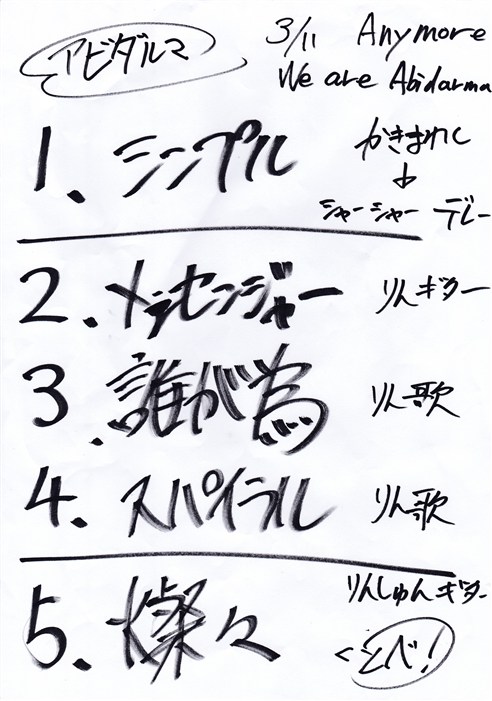 アビダルマ
3/11 Anymore
We are Abidarma
1. シンプル
かきまわし
↓
シャーシャー デレー
2. メッセンジャー りんギター
3. 誰が為 りん歌
4. スパイラル りん歌
5. 燦々 りんしゅんギター
とべ!